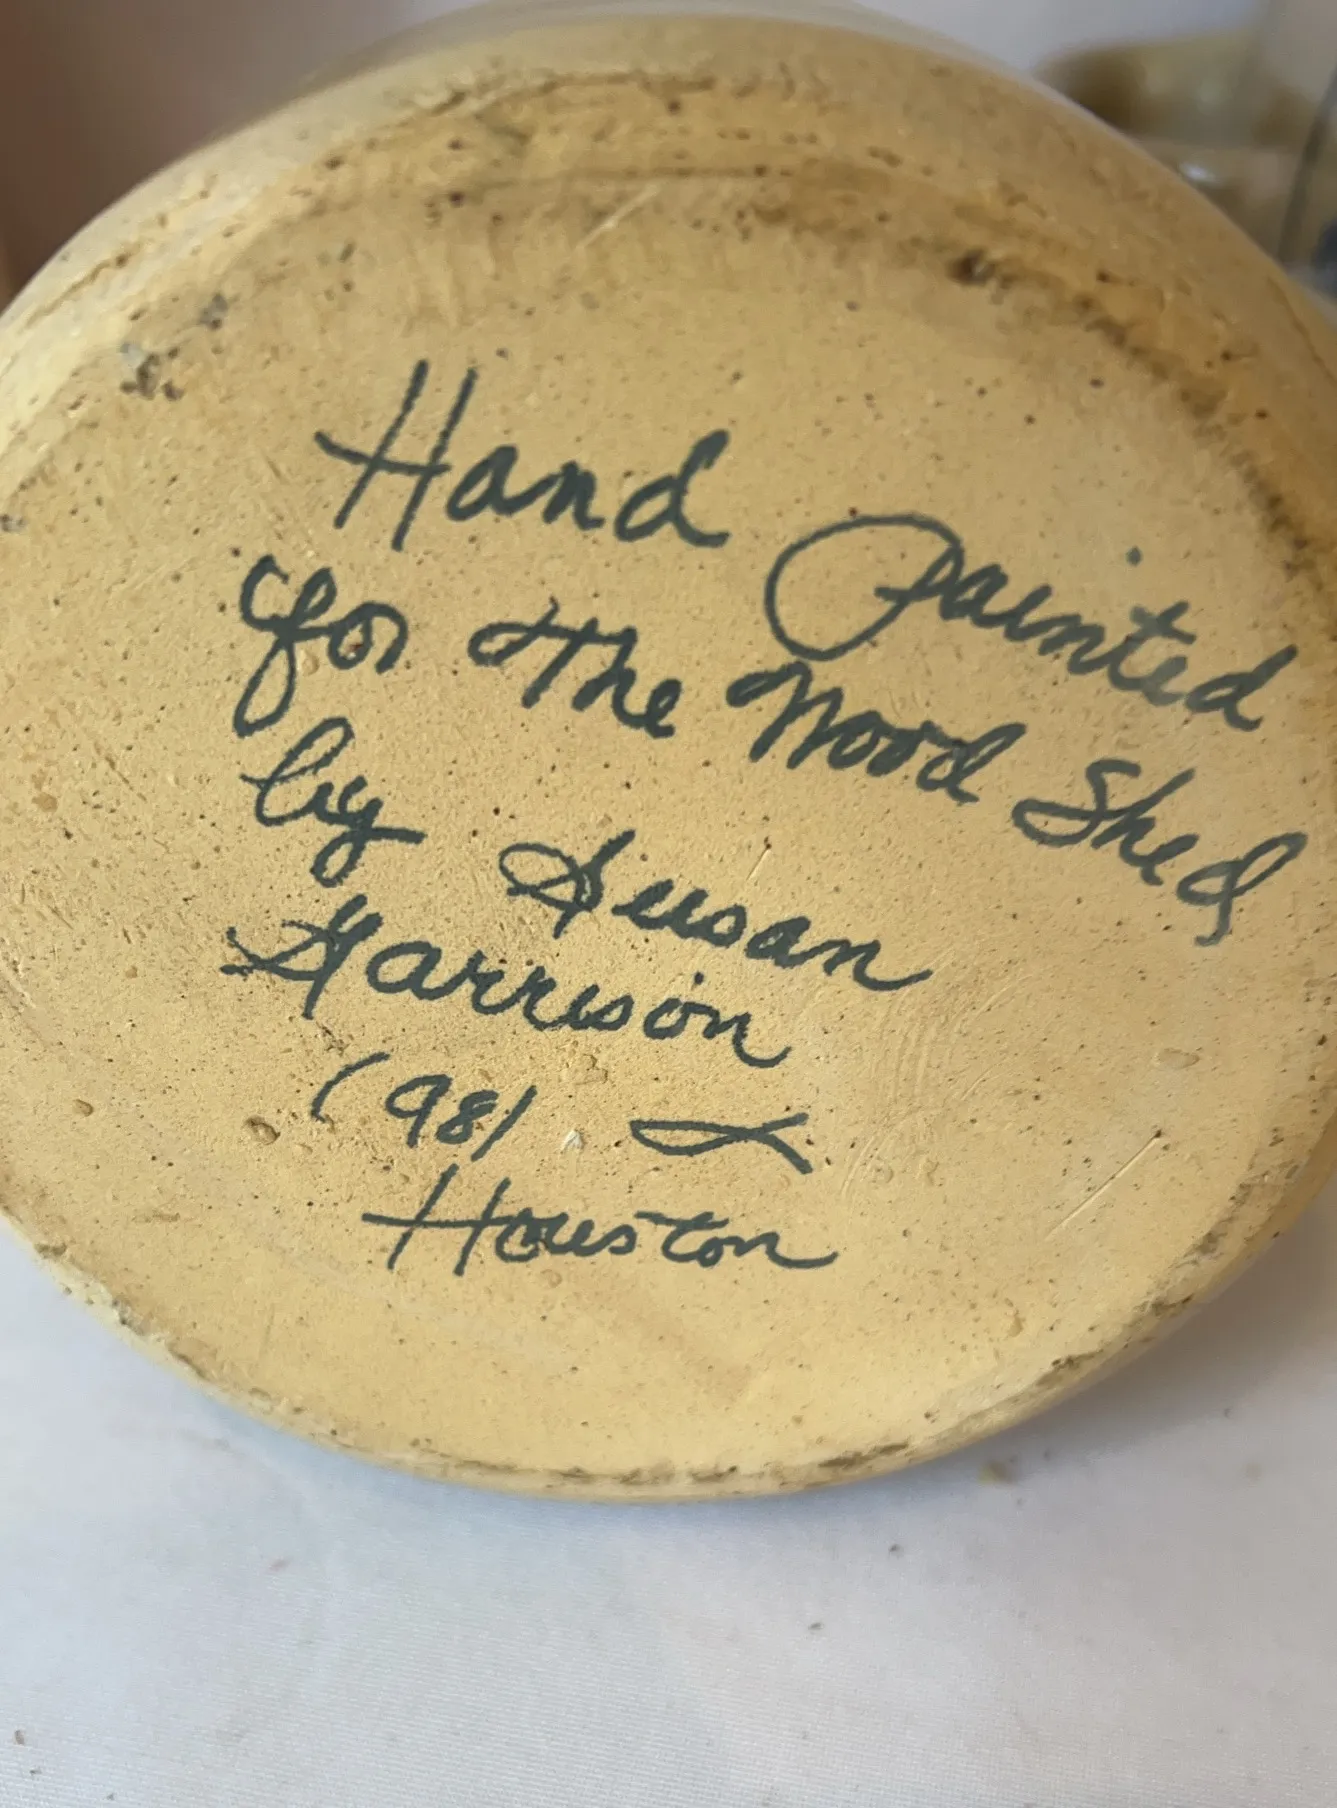 Hand Painted
for The Wood Shed
by Susan
Garrison
1981
Houston